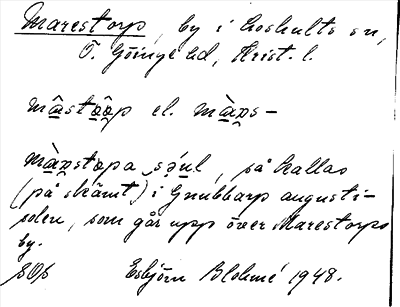 Marestorp, by i Loshults sn,
Ö. Göinge hd, Krist. l.
mâ̠stô̠p el. mà̠ɒ̠s-
mà̠ɒ̠stɒ̠pa sə́u̠l, så kallas
(på skämt) i Gnubbarp augusti-
solen, som går upp över Marestorps
by.
SOs Esbjörn Blohmé 1948.